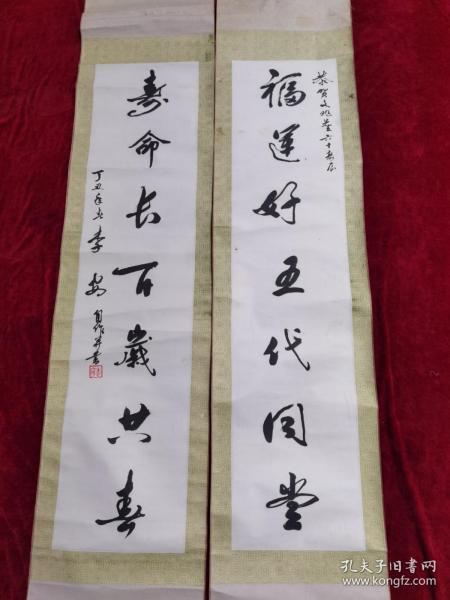 恭贺文兆登六十寿辰
福运好五代同堂
寿命长百岁共春
丁丑年春李
自作并书
孔夫子旧书网
www.kongfz.com